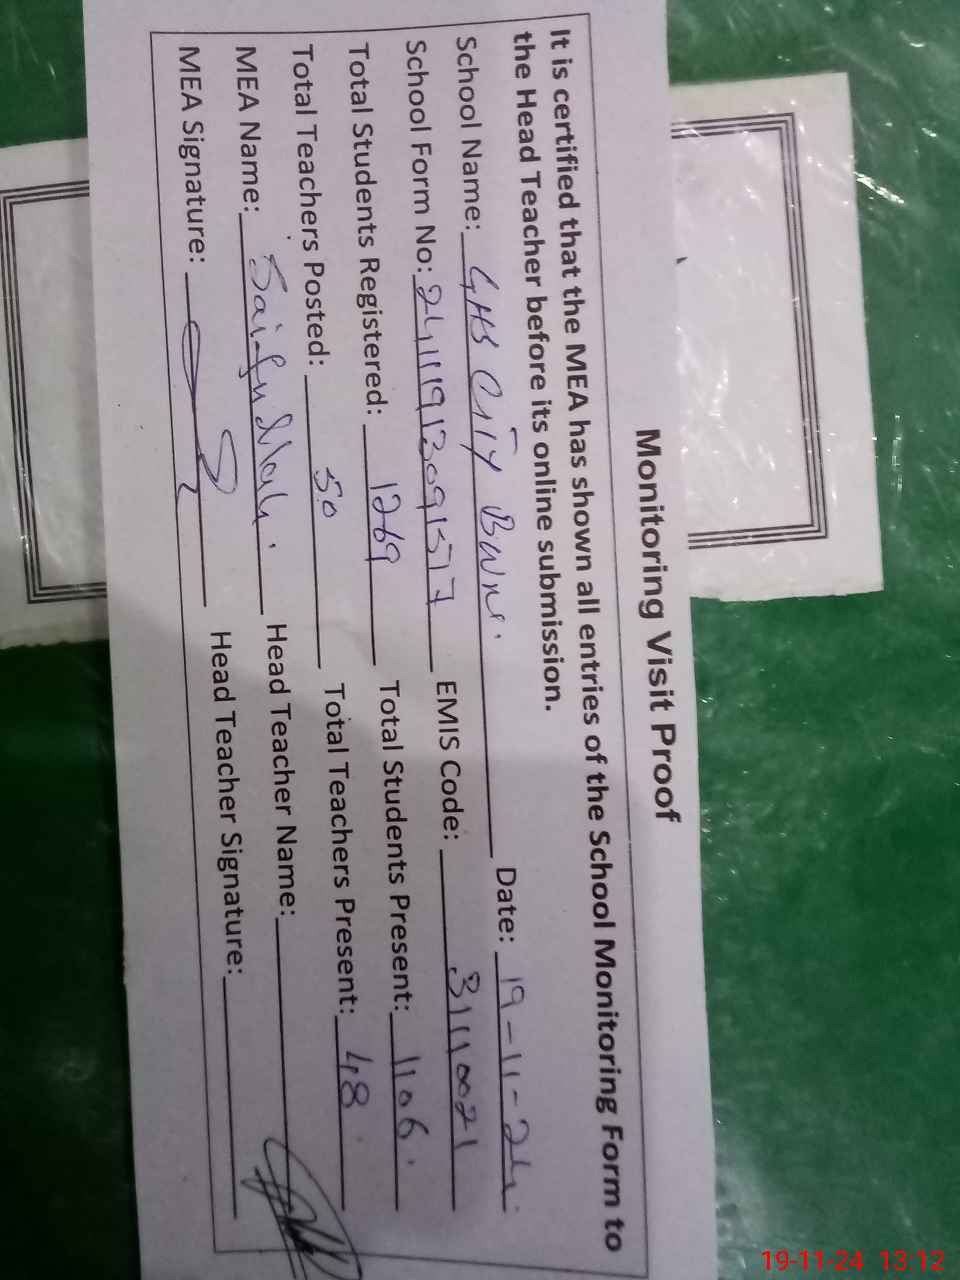 Monitoring Visit Proof
It is certified that the MEA has shown all entries of the School Monitoring Form to
the Head Teacher before its online submission.
School Name: GHS CITY BWN. Date: 19-11-24.
School Form No: 241119130911577 EMIS Code: 31110021
Total Students Registered: 1269 Total Students Present: 1106.
Total Teachers Posted: 50 Total Teachers Present: 48
MEA Name: Saifullah. Head Teacher Name:
MEA Signature: Head Teacher Signature:
19-11-24 13:12